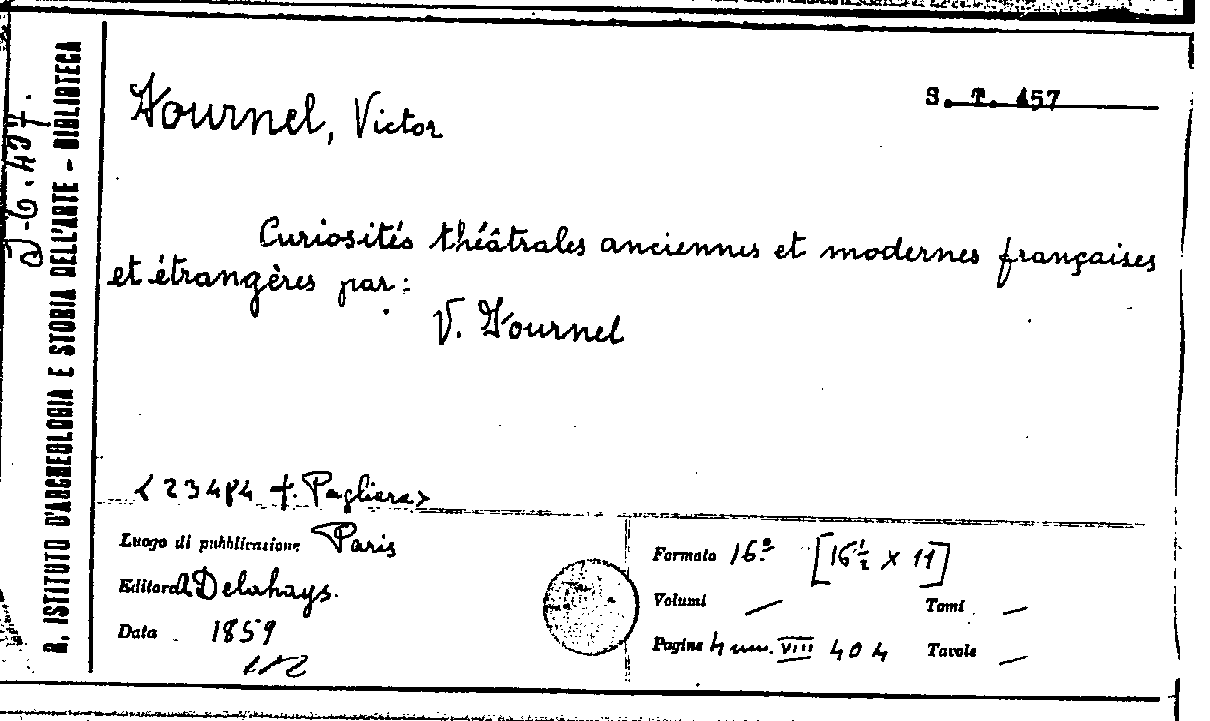 Fournel, Victor
S. T. 457
Curiosités théâtrales anciennes et modernes françaises
et étrangères par:
V. Fournel
<23484 f. Pagliera>
Luogo di pubblicazione Paris
Editore A Delahays.
Data 1859
Formato 16º [16½ x 11]
Volumi — Tomi —
Pagine 4 nn. VIII 404 Tavole —
R. ISTITUTO D'ARCHEOLOGIA E STORIA DELL'ARTE - BIBLIOTECA